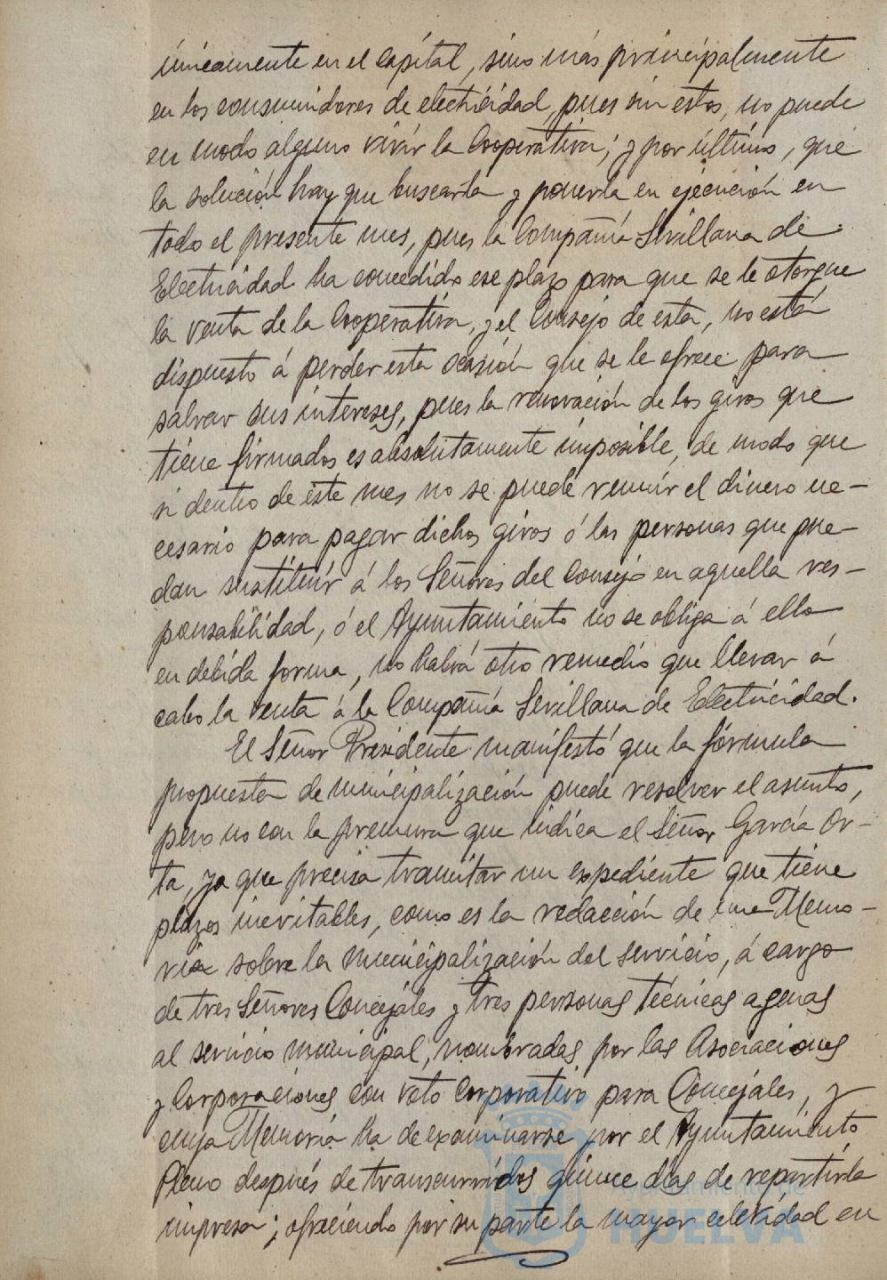 únicamente en el capital, sino más principalmente
en los consumidores de electricidad, pues sin estos, no puede
en modo alguno vivir la Cooperativa; y por último, que
la solución hay que buscarla y ponerla en ejecución en
todo el presente mes, pues la Compañía Sevillana de
Electricidad ha concedido ese plazo para que se le otorgue
la venta de la Cooperativa, y el Consejo de esta, no está
dispuesto á perder esta ocasión que se le ofrece para
salvar sus intereses, pues la renovación de los giros que
tiene firmados es absolutamente imposible, de modo que
si dentro de este mes no se puede reunir el dinero ne-
cesario para pagar dichos giros ó las personas que pue-
dan sustituír á los Señores del Consejo en aquella res-
ponsabilidad, ó el Ayuntamiento no se obliga á ello
en debida forma, no habrá otro remedio que llevar á
cabo la venta á la Compañía Sevillana de Electricidad.
El Señor Presidente manifestó que la fórmula
propuesta de municipalización puede resolver el asunto,
pero no con la premura que indica el Señor García Or-
ta, ya que precisa tramitar un expediente que tiene
plazos inevitables, como es la redacción de una Memo-
ria sobre la municipalización del servicio, á cargo
de tres Señores Concejales y tres personas técnicas agenas
al servicio municipal, nombradas por las Asociaciones
y Corporaciones con voto corporativo para Concejales, y
cuya Memoria ha de examinarse por el Ayuntamiento
Pleno después de transcurridos quince días de repartirla
impresa; ofreciendo por su parte la mayor celeridad en
Ayuntamiento de
HUELVA